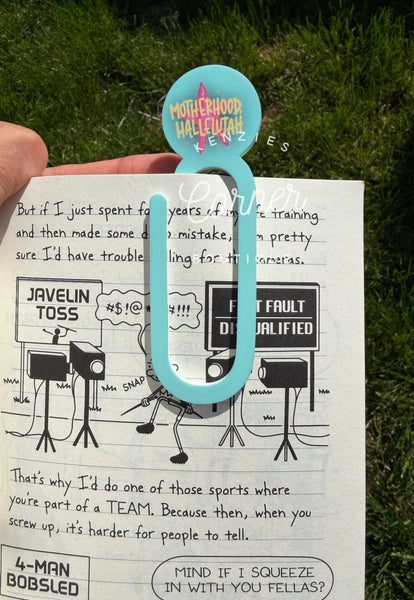 MOTHERHOOD,
HALLELUJAH
KENZIES
Corner
But if I just spent years of training
and then made some mistake, pretty
sure I'd have trouble for cameras.
JAVELIN
TOSS
#$!@ #!!!
FAULT
DISQUALIFIED
SNAP
That's why I'd do one of those sports where
you're part of a TEAM. Because then, when you
screw up, it's harder for people to tell.
4-MAN
BOBSLED
MIND IF I SQUEEZE
IN WITH YOU FELLAS?